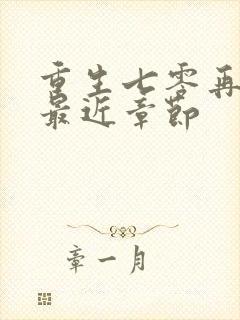 重生七零再
最近章节
章一月